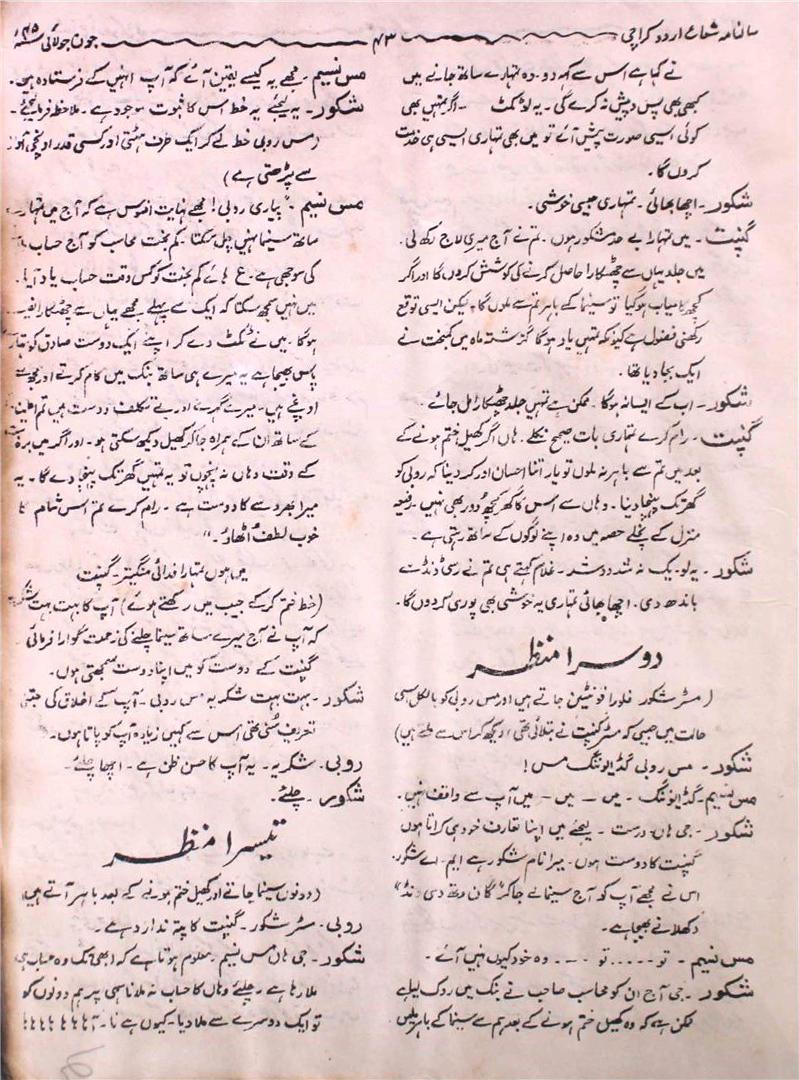 سالنامہ شعاع اردو کراچی ۴۳ جون جولائی ۴۵ء
نے کہا ہے اس سے کہہ دو۔ وہ تمہارے ساتھ جانے میں
کبھی بھی پس و پیش نہ کرے گی۔ یہ لو ٹکٹ - اگر تمہیں بھی
کوئی ایسی صورت پیش آئے تو میں بھی تمہاری ایسی ہی خدمت
کروں گا۔
شکور۔ اچھا بھائی۔ تمہاری جیسی خوشی۔
گنپت۔ میں تمہارا بے حد مشکور ہوں۔ تم نے آج میری لاج رکھ لی۔
میں جلد یہاں سے چھٹکارا حاصل کرنے کی کوشش کروں گا اور اگر
کچھ کامیاب ہو گیا تو سینما کے باہر تم سے ملوں گا۔ لیکن ایسی توقع
رکھنی فضول ہے کیونکہ تمہیں یاد ہوگا گزشتہ ماہ میں کمبخت نے
ایک بجا دیا تھا۔
شکور۔ اب کے ایسا نہ ہوگا۔ ممکن ہے تمہیں جلد چھٹکارا مل جائے۔
گنپت۔ رام کرے تمہاری بات صحیح نکلے۔ ہاں اگر کھیل ختم ہونے کے
بعد میں تم سے باہر نہ ملوں تو یار اتنا احسان اور کر دینا کہ روبی کو
گھر تک پہنچا دینا۔ وہاں سے اس کا گھر کچھ دور بھی نہیں۔
منزل کے نچلے حصہ میں وہ اپنے لوگوں کے ساتھ رہتی ہے۔
شکور۔ یہ لو۔ یک نہ شد دو شد۔ غلام کہتے ہی تم نے رسی ڈنڈے سے
باندھ دی۔ اچھا بھائی تمہاری یہ خوشی بھی پوری کر دوں گا۔
دوسرا منظر
(مسٹر شکور فلورا فونٹین جاتے ہیں اور مس روبی کو بالکل اسی
حالت میں جیسی کہ مسٹر گنپت نے بتلائی تھی دیکھ کر اس سے ملتے ہیں)
شکور۔ مس روبی گڈ ایوننگ مس!
مس نسیم۔ گڈ ایوننگ۔ میں - میں - میں آپ سے واقف نہیں۔
شکور۔ جی ہاں۔ درست۔ لیجئے میں اپنا تعارف خود ہی کراتا ہوں
گنپت کا دوست ہوں۔ میرا نام شکور ہے ایم۔ اے شکور۔
اس نے مجھے آپ کو آج سینما لے جا کر "گان ودھ دی ونڈ"
دکھلانے بھیجا ہے۔
مس نسیم۔ تو ..... تو ... وہ خود کیوں نہیں آئے۔
شکور۔ جی آج ان کو محاسب صاحب نے بنک میں روک لیا ہے
ممکن ہے کہ وہ کھیل ختم ہونے کے بعد ہم سے سینما کے باہر ملیں
مس نسیم۔ مجھے یہ کیسے یقین آئے کہ آپ انہیں کے فرستادہ ہیں۔
شکور۔ یہ لیجئے یہ خط اس کا ثبوت موجود ہے۔ ملاحظہ فرما لیجئے۔
(مس روبی خط لے کر ایک طرف ہٹتی اور کسی قدر اونچی آواز
سے پڑھتی ہے)
مس نسیم۔ "پیاری روبی! مجھے نہایت افسوس ہے کہ آج میں تمہارے
ساتھ سینما نہیں چل سکتا۔ کم بخت محاسب کو آج حساب
کی سوجھی ہے۔ ع ہائے کم بخت کو کس وقت حساب یاد آیا۔
میں نہیں سمجھ سکتا کہ ایک سے پہلے مجھے یہاں سے چھٹکارا نصیب
ہوگا۔ میں نے ٹکٹ دے کر اپنے ایک دوست صادق کو تمہارے
پاس بھیجا ہے یہ میرے ہی ساتھ بنک میں کام کرتے اور مجھ سے
اونچے ہیں۔ میرے گہرے اور بے تکلف دوست ہیں تم اطمینان
کے ساتھ ان کے ہمراہ جا کر کھیل دیکھ سکتی ہو۔ اور اگر میں
کے وقت وہاں نہ پہنچوں تو یہ تمہیں گھر تک پہنچا دے گا۔ یہ
میرا بھروسے کا دوست ہے۔ رام کرے تم اس شام کا
خوب لطف اٹھاؤ۔"
میں ہوں تمہارا فدائی منگیتر۔ گنپت
(خط ختم کر کے جیب میں رکھتے ہوئے) آپ کا بہت بہت شکریہ
کہ آپ نے آج میرے ساتھ سینما چلنے کی زحمت گوارا فرمائی۔
گنپت کے دوست کو میں اپنا دوست سمجھتی ہوں۔
شکور۔ بہت بہت شکریہ مس روبی۔ آپ کے اخلاق کی جتنی
تعریف سنی تھی اس سے کہیں زیادہ آپ کو پاتا ہوں۔
روبی۔ شکریہ۔ یہ آپ کا حسن ظن ہے۔ اچھا چلئے۔
شکور۔ چلئے۔
تیسرا منظر
(دونوں سینما جاتے اور کھیل ختم ہونے کے بعد باہر آتے ہیں)
روبی۔ مسٹر شکور۔ گنپت کا پتہ ندارد ہے۔
شکور۔ جی ہاں مس نسیم۔ معلوم ہوتا ہے کہ ابھی تک وہ حساب ہی
ملا رہا ہے۔ چلئے وہاں کا حساب نہ ملا نا سہی پر ہم دونوں کو
تو ایک دوسرے سے ملا دیا۔ کیوں ہے نا۔ آہا ہا ہا ہا ہا